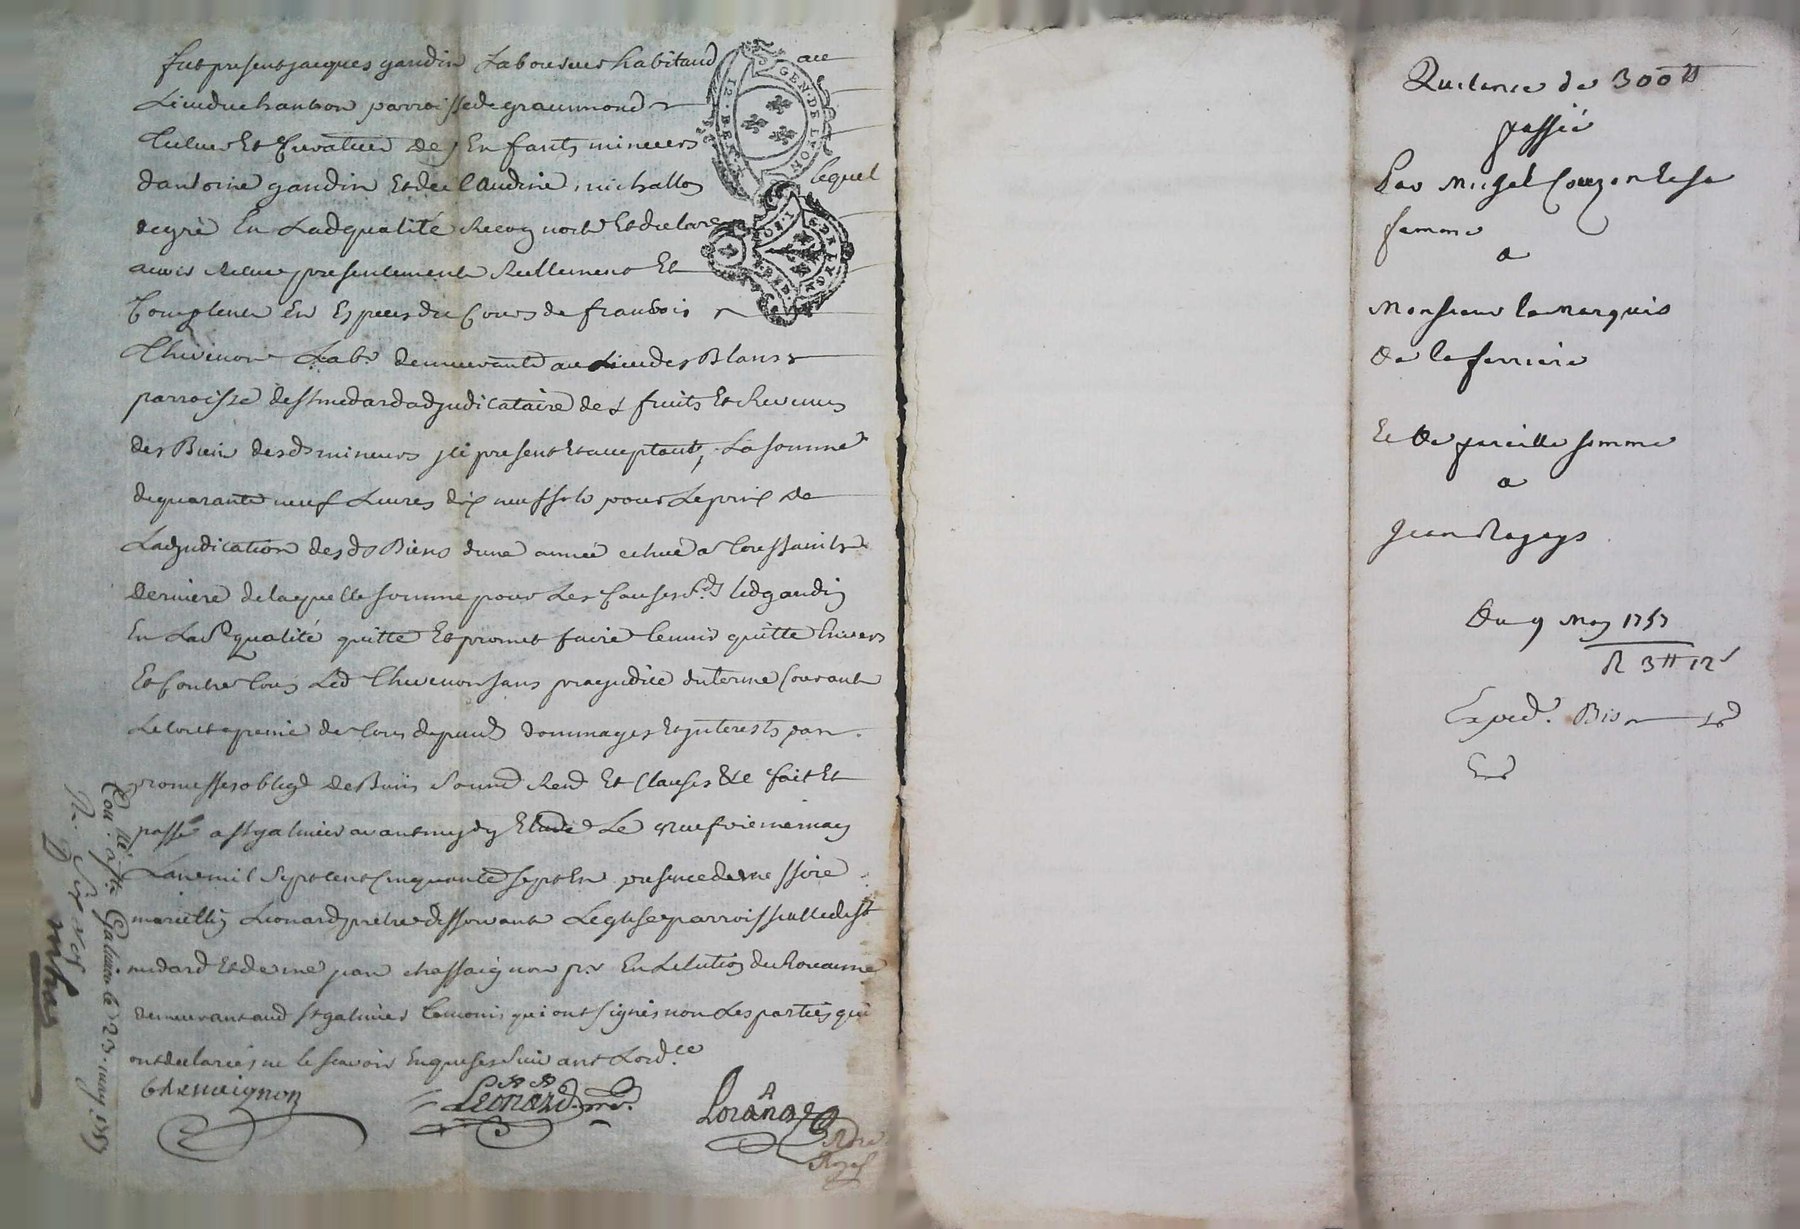 fut present jacques gaudin Laboureur habitand au
Lieu du chambon parroisse de grammond
Tuteur Et Curateur des Enfants mineurs
dantoine gaudin Et de Claudine michallon lequel
de gré En Ladqualité Recognoit Et declare
avoir Receu presentement Reellement Et
Comptent En Especes du Cours de francois
Thivenon Labr demeurante au Lieu des Blancs
parroisse de st medard adjudicataire des fruits Et Revenus
des Bien desds mineurs jci present Et acceptant, La somme
de quarante neuf Livres dix neuf sols pour Le prix de
Ladjudication desds Biens dune année echue a Toussaints
derniere de laquelle somme pour Les Causes sds led gaudin
En Lad qualité quitte Et promet faire tenir quitte Envers
Et Contre tous Led Thivenon sans prejudice du terme Courant
Le tout a peine de tous depends dommages Et jnterests par
promesses obligd de Biens Soumd Rend Et Clauses &c fait Et
passé a st galmier avant midy Etude Le neufvieme may
Lan mil Sept cent Cinquante sept En presence de messire
Leonard pretre desservant Leglise parroissialle de st
medard Et de me jean chassaignon pr En Lelection de Roanne
demeurant aud st galmier temoins qui ont signés non Les parties qui
ont declarés ne le scavoir Enquises Suivant Lordce
Chassaignon
Leonard
GEN · DE LYON
Coulé a st Galmier le 23 may 1757
Quitance de 300tt
passée
Par Michel Couzon Et sa
femme
a
Monsieur le Marquis
de la ferriere
Et de pareille somme
a
Jean Rageys
Du 9 May 1757
R 3tt 12s
Exped. Bis